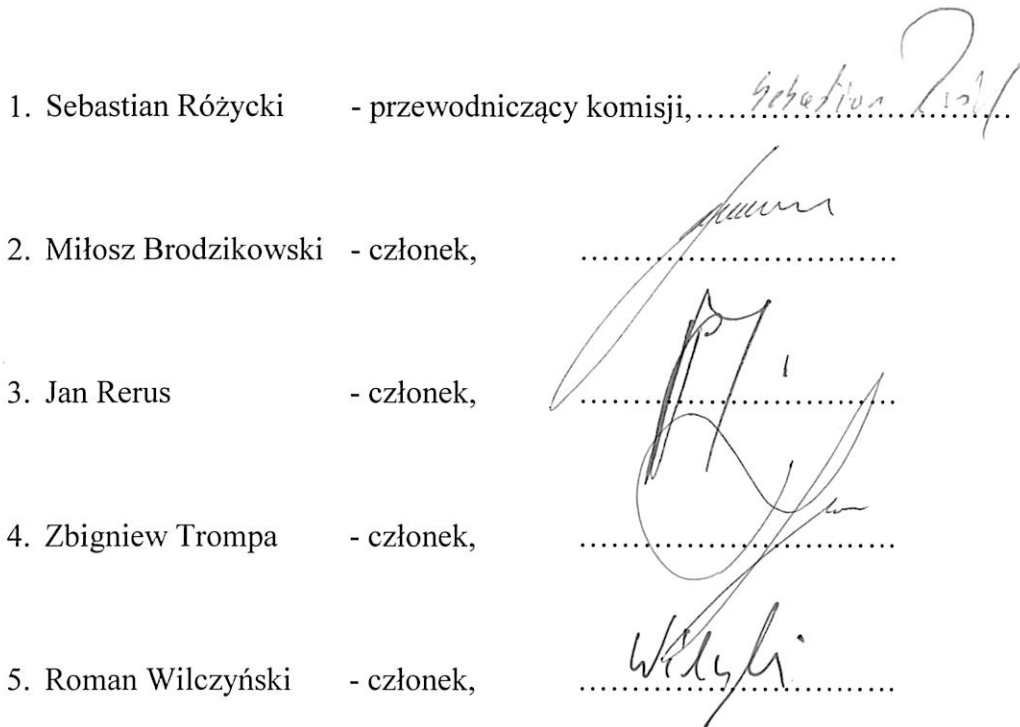 1. Sebastian Różycki - przewodniczący komisji,.................................... Sebastian
2. Miłosz Brodzikowski - członek, ....................................
3. Jan Rerus - członek, ....................................
4. Zbigniew Trompa - członek, ....................................
5. Roman Wilczyński - członek, ....................................